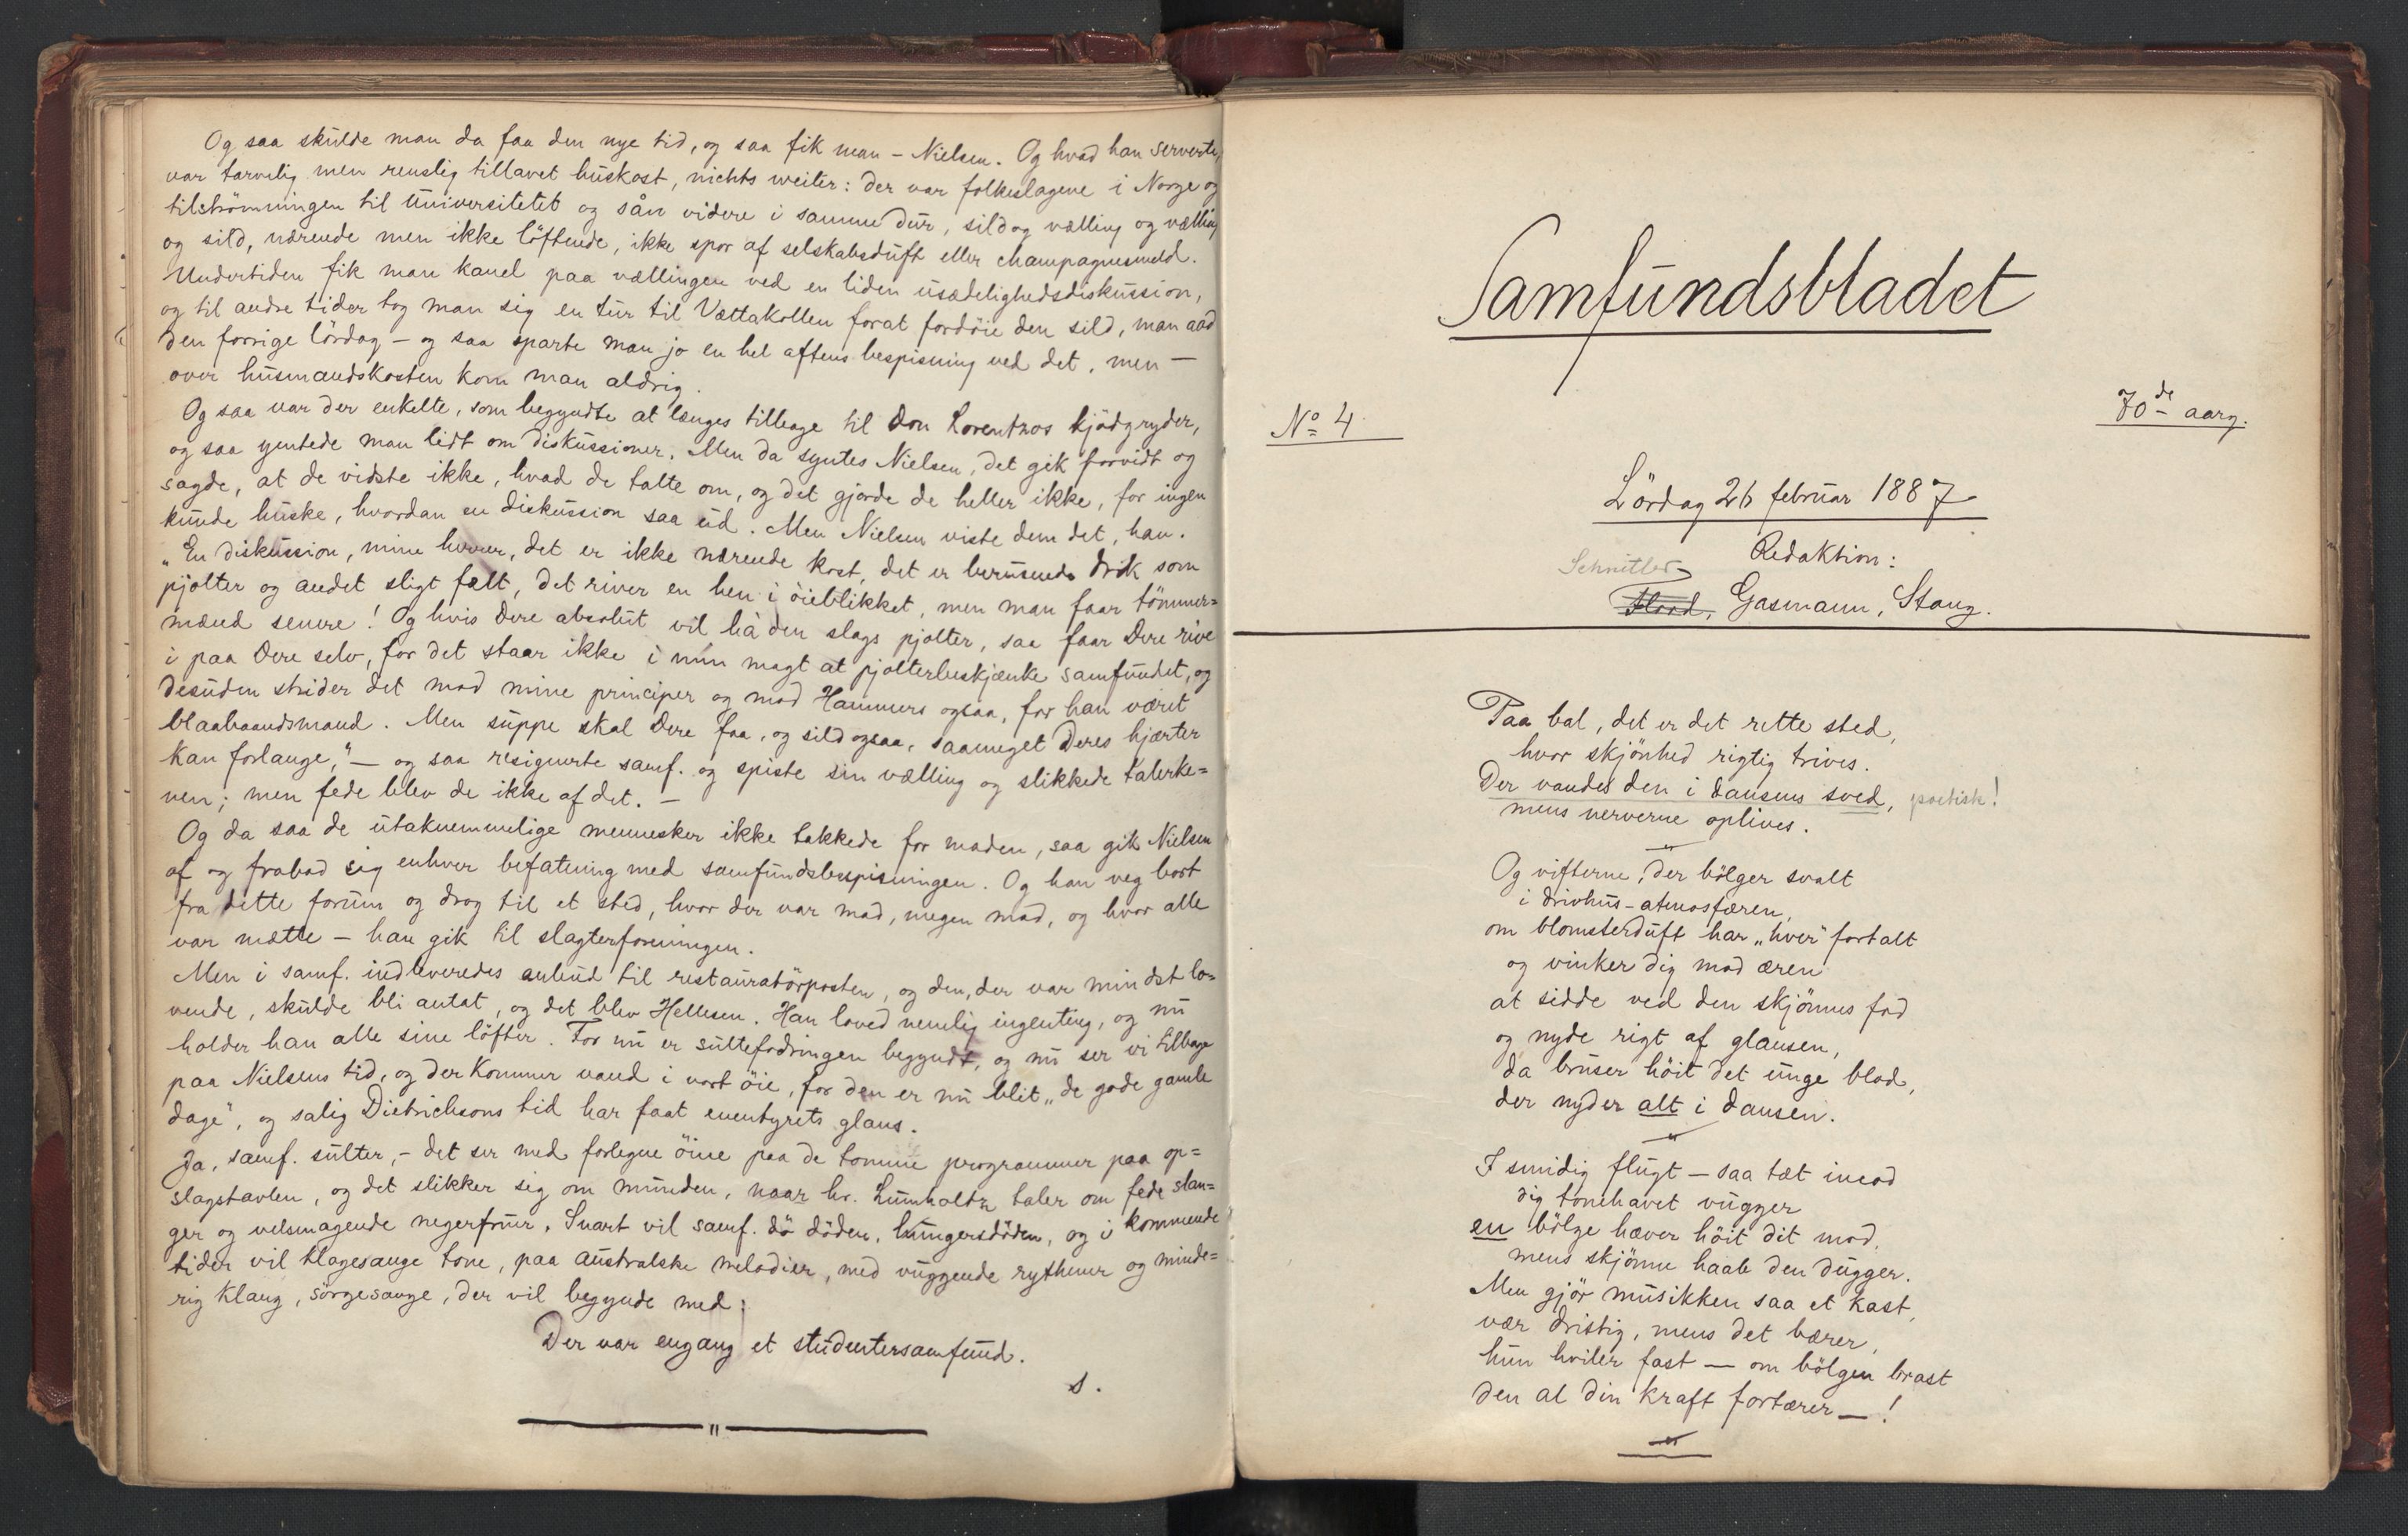 Og saa skulde man da faa den nye tid, og saa fik man – Nielsen. Og hvad han serverte,
var tarvelig men renslig tillavet huskost, nichts weiter: der var folkeslagene i Norge og
tilströmningen til Universitetet og sån videre i samme dur, sild og vælling og vælling
og sild, nærende men ikke löftende, ikke spor af selskabsduft eller champagnesmeld.
Undertiden fik man kanel paa vællingen ved en liden usædelighedsdiskussion,
og til andre tider tog man sig en tur til Vættakollen forat fordöie den sild, man aad
den forrige lördag – og saa sparte man jo en hel aftens bespisning ved det, men –
over husmandskosten kom man aldrig.
Og saa var der enkelte, som begyndte at længes tilbage til Don Lorentzos kjödgryder,
og saa ymtede man lidt om diskussioner. Men da syntes Nielsen, det gik forvidt og
sagde, at de vidste ikke, hvad de talte om, og det gjorde de heller ikke, for ingen
kunde huske, hvordan en diskussion saa ud. Men Nielsen viste dem det, han.
„En diskussion, mine herrer, det er ikke nærende kost, det er berusende drik som
pjolter og andet sligt fælt, det river en hen i öieblikket, men man faar tömmer=
mænd senere! Og hvis Dere absolut vil ha den slags pjolter, saa faar Dere rive
i paa Dere selv, for det staar ikke i min magt at pjolterbeskjænke samfundet, og
desuden strider det mod mine principer og mod Hammers ogsaa, for han været
blaabaandsmand. Men suppe skal Dere faa, og sild ogsaa, saameget Deres hjærter
kan forlange," – og saa resignerte samf. og spiste sin vælling og slikkede talerke=
nen; men fede blev de ikke af det. –
Og da saa de utaknemmelige mennesker ikke takkede for maden, saa gik Nielsen
af og frabad sig enhver befatning med samfundsbespisningen. Og han veg bort
fra dette forum og drog til et sted, hvor der var mad, megen mad, og hvor alle
var mætte – han gik til slagterforeningen.
Men i samf. indleveredes anbud til restauratörposten, og den, der var mindst lo=
vende, skulde bli antat, og det blev Hellesen. Han loved nemlig ingenting, og nu
holder han alle sine löfter. For nu er sultefodringen begyndt, og nu ser vi tilbage
paa Nielsens tid, og der kommer vand i vort öie, for den er nu blit „de gode gamle
dage", og salig Dietrichsons tid har faat eventyrets glans.
Ja, samf. sulter, – det ser med forlegne öine paa de tomme programmer paa op=
slagstavlen, og det slikker sig om munden, naar hr. Lumholtz taler om fede slan=
ger og velsmagende negerfruer. Snart vil samf. dö döden, hungersdöden, og i kommende
tider vil klagesange tone, paa australske melodier, med vuggende rythmer og minde=
rig klang, sörgesange, der vil begynde med:
Der var engang et studentersamfund.
S.
Samfundsbladet
No 4
70de aarg.
Lördag 26 februar 1887
Redaktion:
Schnitler
Flood, Gasmann, Stang.
Paa bal, det er det rette sted,
hvor skjönhed rigtig trives.
Der vandes den i dansens sved, poetisk!
mens nerverne oplives.
Og vifterne, der bölger svalt
i drivhus-atmosfæren,
om blomsterduft har „hver" fortalt
og vinker dig mod æren
at sidde ved den skjönnes fod
og nyde rigt af glansen,
da bruser höit det unge blod,
der nyder alt i dansen.
I smidig flugt – saa tæt imod
dig tonehavet vugger
en bölge hæver höit dit mod,
mens skjönne haab den dugger.
Men gjör musikken saa et kast,
vær dristig, mens det bærer,
hun hviler fast – om bölgen brast
den al din kraft fortærer – !